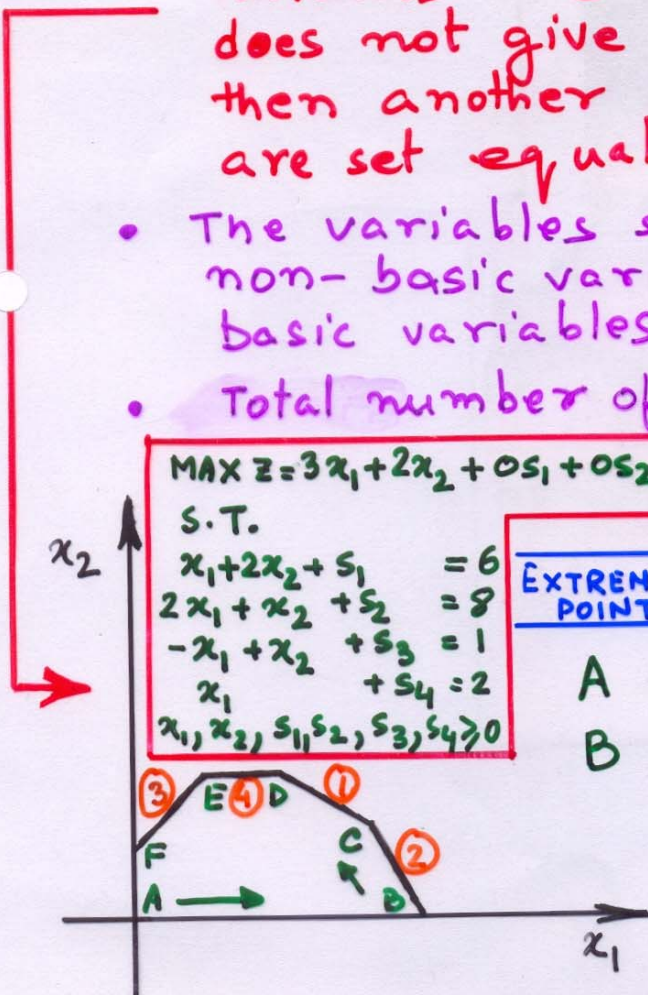 does not give
then another
are set equal
• The variables s
non-basic var
basic variables
• Total number of
MAX Z = 3x₁+2x₂+0s₁+0s₂
S.T.
x₁+2x₂+s₁ = 6
2x₁+x₂ +s₂ = 8
-x₁+x₂ +s₃ = 1
x₁ +s₄ = 2
x₁, x₂, s₁, s₂, s₃, s₄ ≥ 0
EXTREM
POINT
A
B
x₂
③ E ④ D ①
F C ②
A B
x₁